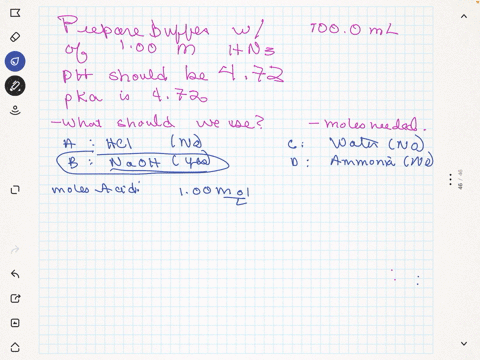 Prepare Buffer w/ 100.0 mL
of 1.00 M HN3
pH should be 4.72
pka is 4.72
- What should we use? - moles needed.
A : HCl (No) C: Water (No)
B : NaOH (Yes) D: Ammonia (No)
moles Acid: 1.00 mol
L
46 / 46